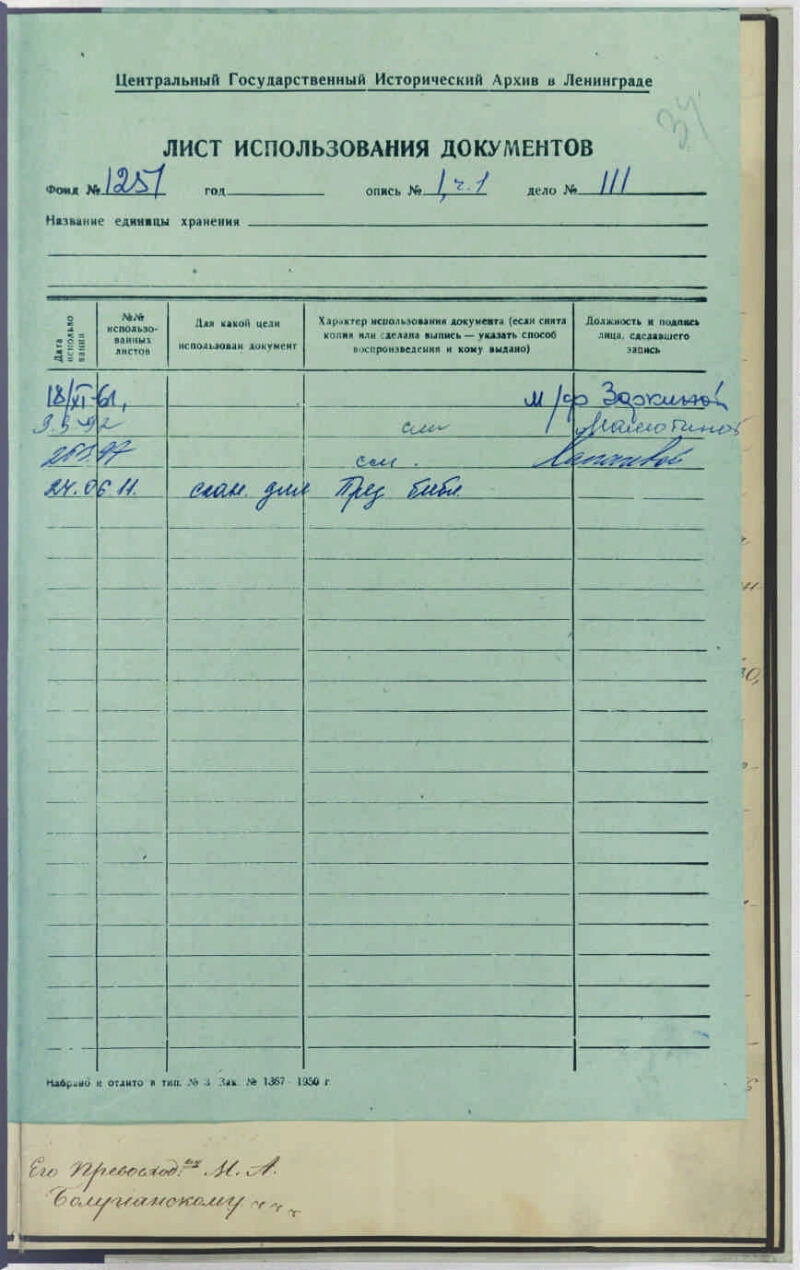 Центральный Государственный Исторический Архив в Ленинграде
34
ЛИСТ ИСПОЛЬЗОВАНИЯ ДОКУМЕНТОВ
Фонд № 1251 год опись № 1, ч. 1 дело № 111
Название единицы хранения
Дата использования
№№ использованных листов
Для какой цели
использован документ
Характер использования документа (если снята
копия или сделана выпись — указать способ
воспроизведения и кому выдано)
Должность и подпись
лица, сделавшего
запись
18/XI-61, м/ф
9.3 92
97
24.06 11. скан. для През библ.
Набрано и отлито в тип. № Зак. № 1367 - 1950 г.
Его Превосход.ву М. А.
Балугианскому